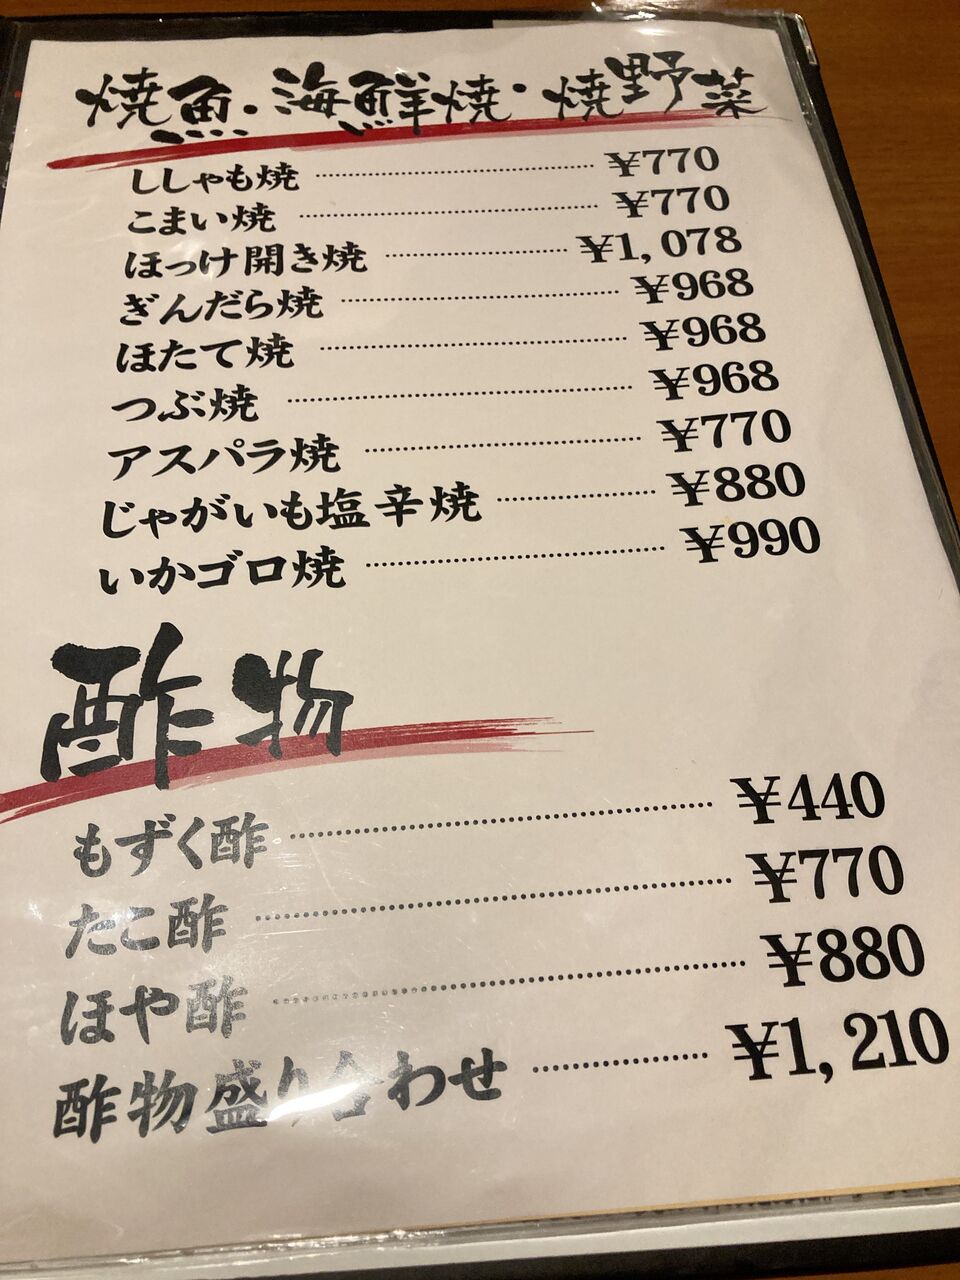 焼魚・海鮮焼・焼野菜
ししゃも焼 ¥770
こまい焼 ¥770
ほっけ開き焼 ¥1,078
ぎんだら焼 ¥968
ほたて焼 ¥968
つぶ焼 ¥968
アスパラ焼 ¥770
じゃがいも塩辛焼 ¥880
いかゴロ焼 ¥990
酢物
もずく酢 ¥440
たこ酢 ¥770
ほや酢 ¥880
酢物盛り合わせ ¥1,210